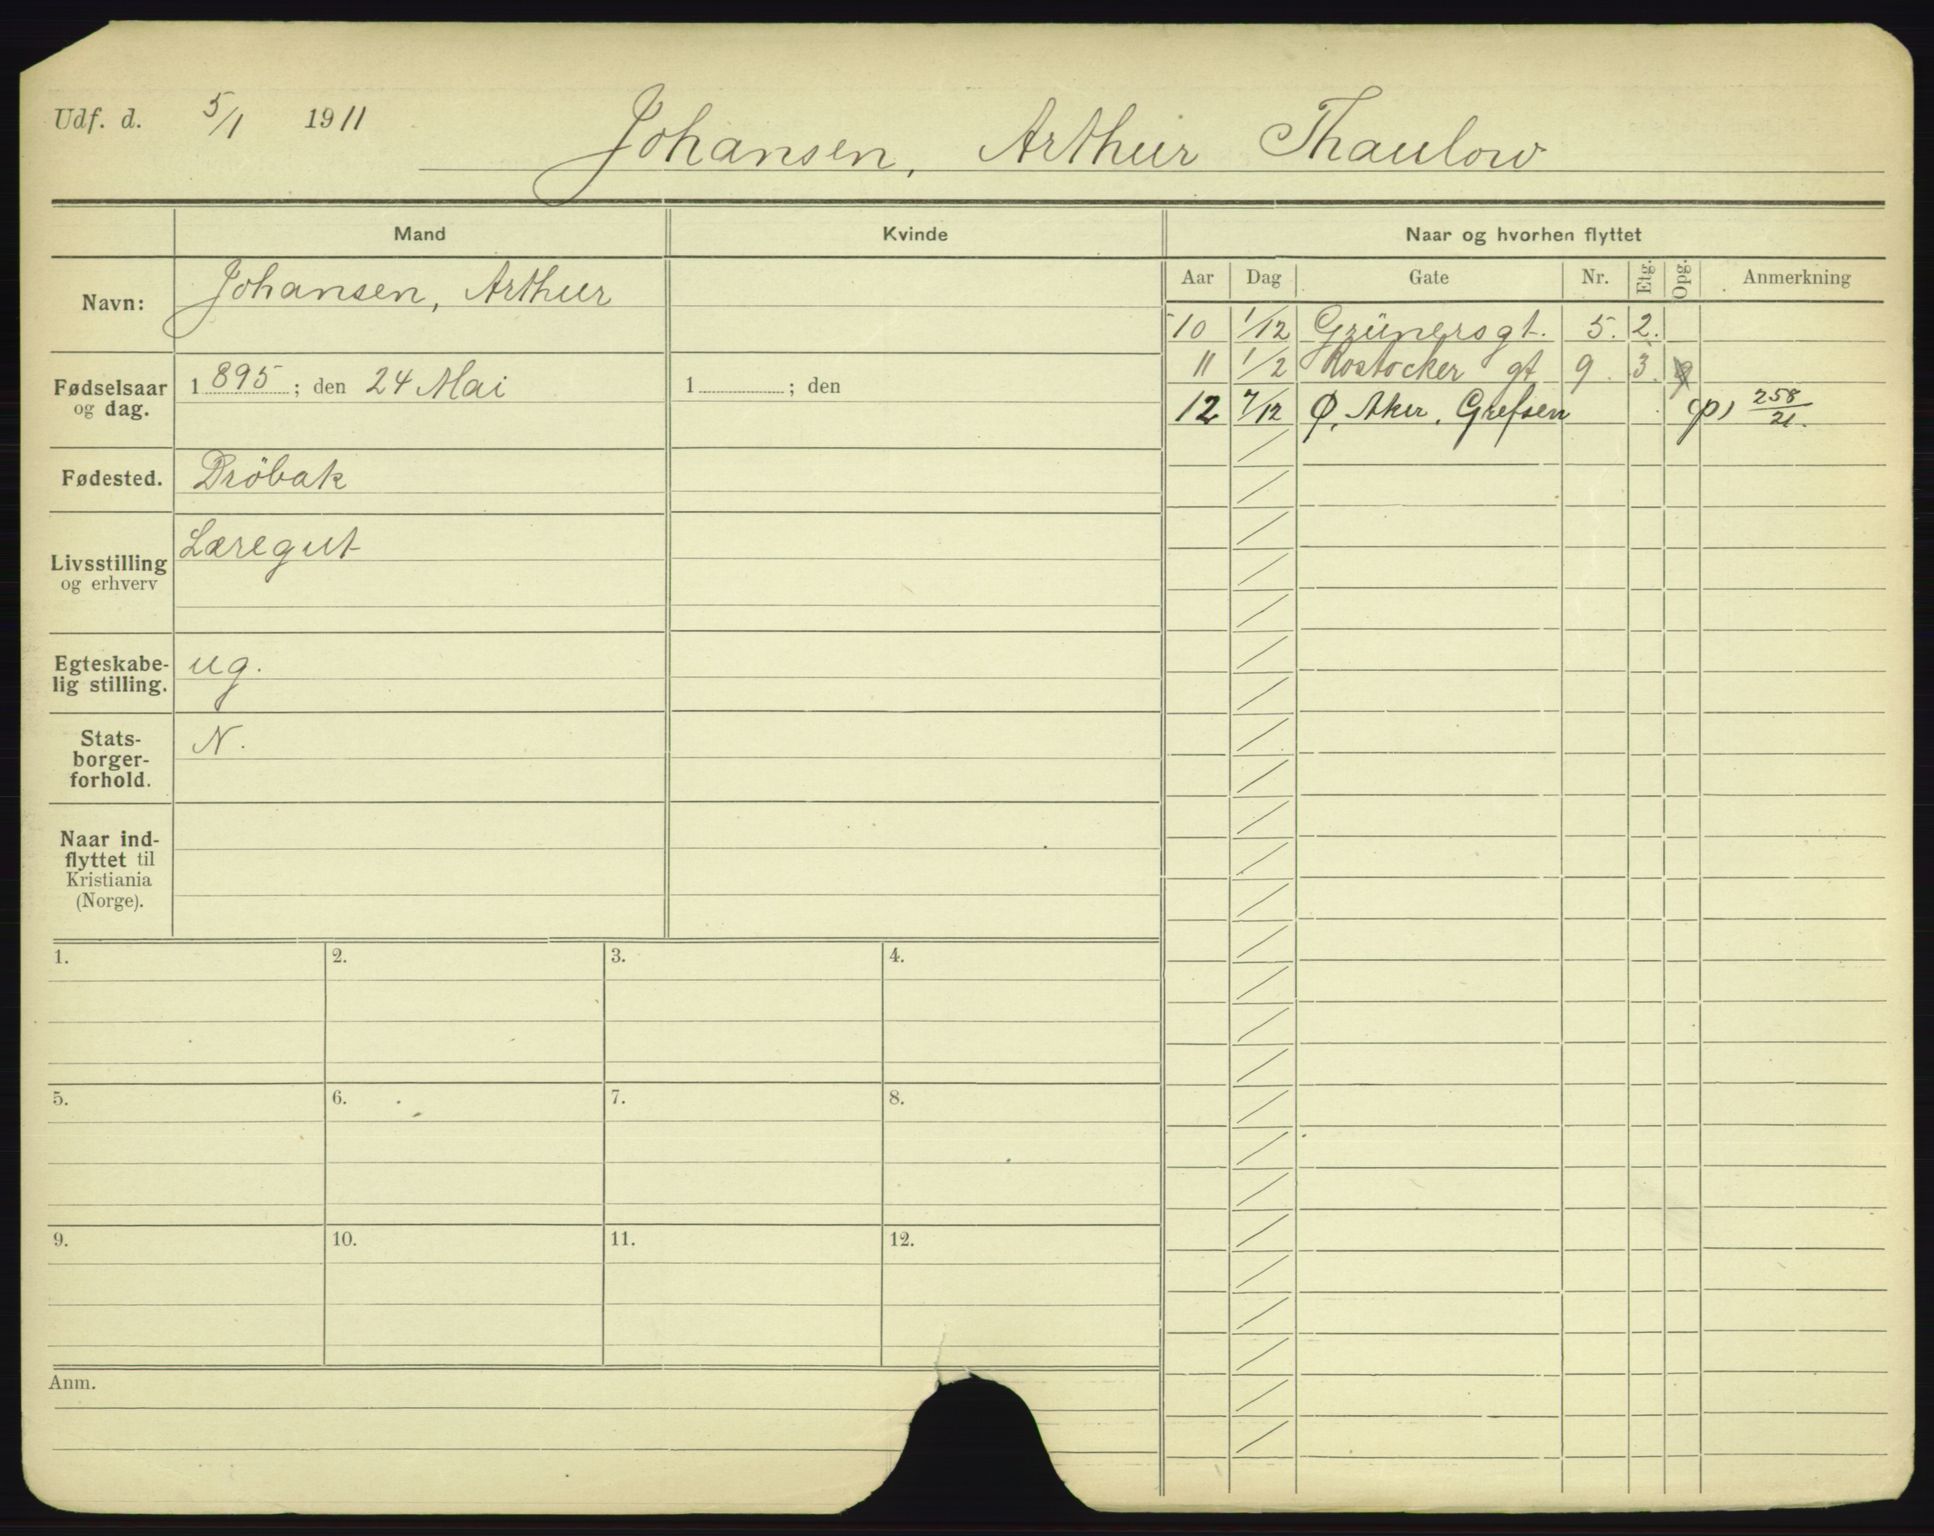 Udf. d. 5/1 1911
Johansen, Arthur Thaulow
Mand
Kvinde
Naar og hvorhen flyttet
Aar Dag Gate Nr. Etg. Opg. Anmerkning
Navn: Johansen, Arthur
10 1/12 Grünersgt. 5. 2.
11 1/2 Rostocker gt 9. 3.
12 7/12 Ø. Aker. Grefsen (p) 258/21.
Fødselsaar og dag. 1895; den 24 Mai
1 ; den
Fødested. Dröbak
Livsstilling og erhverv
Læregut
Egteskabe-
lig stilling. ug.
Stats-
borger-
forhold. N.
Naar ind-
flyttet til
Kristiania
(Norge).
1. 2. 3. 4.
5. 6. 7. 8.
9. 10. 11. 12.
Anm.